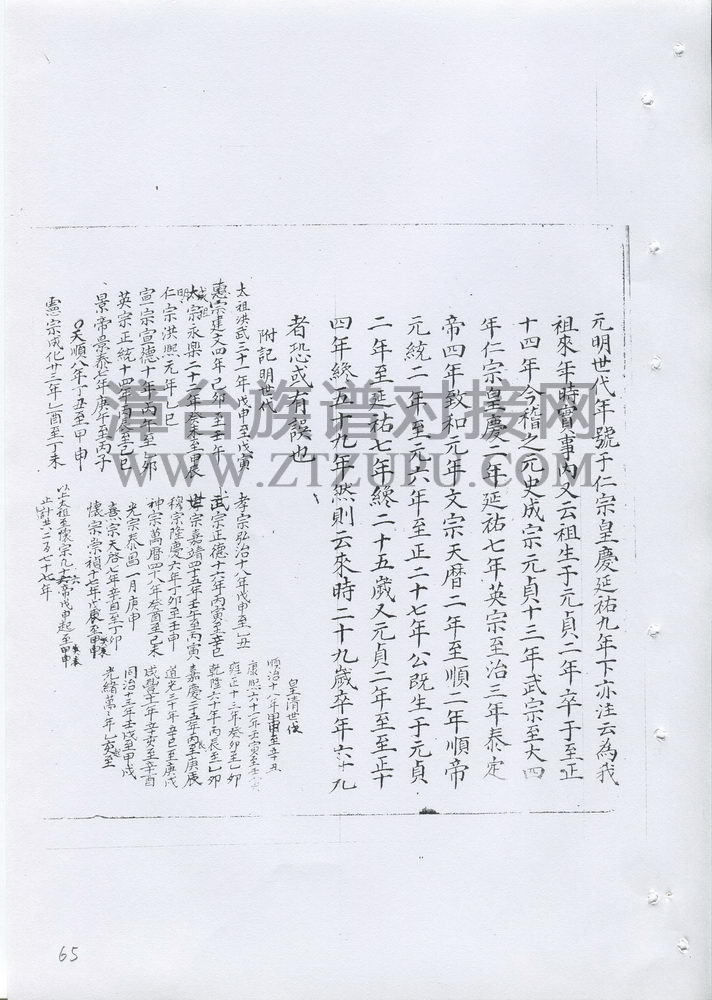 元明世代年號于仁宗皇慶延祐九年下亦注云為我
祖來年時實事內又云祖生于元貞二年卒于至正
十四年今稽之元史成宗元貞十三年武宗至大四
年仁宗皇慶二年延祐七年英宗至治三年泰定
帝四年致和元年文宗天曆二年至順二年順帝
元統二年至元六年至正二十七年公既生于元貞
二年至延祐七年終二十五歲又元貞二年至至正十
四年終五十九年然則云來時二十九歲卒年六十九
者恐或有誤也
附記明世代
太祖洪武三十一年戊申至戊寅
惠宗建文四年己卯至壬午
太宗永樂二十二年癸未至甲辰
仁宗洪熙元年乙巳
宣宗宣德十年丙午至乙卯
英宗正統十四年丙辰至己巳
景帝景泰七年庚午至丙子
天順八年丁丑至甲申
憲宗成化廿二年乙酉至丁未
孝宗弘治十八年戊申至乙丑
武宗正德十六年丙寅至辛巳
世宗嘉靖四十五年壬午至丙寅
穆宗隆慶六年丁卯至壬申
神宗萬曆四十八年癸酉至己未
光宗泰昌一月庚申
熹宗天啓七年辛酉至丁卯
懷宗崇禎十七年戊辰至甲申
以上太祖至懷宗九十六帝戊申起至甲申
止計共二百七十七年
皇清世代
順治十八年甲申至辛丑
康熙六十一年壬寅至壬寅
雍正十三年癸卯至乙卯
乾隆六十年丙辰至乙卯
嘉慶二十五年丙辰至庚辰
道光三十年辛巳至庚戌
咸豐十一年辛亥至辛酉
同治十三年壬戌至甲戌
光緒萬萬年乙亥至
65
潭台族谱对接网
WWW.ZTZUPU.COM